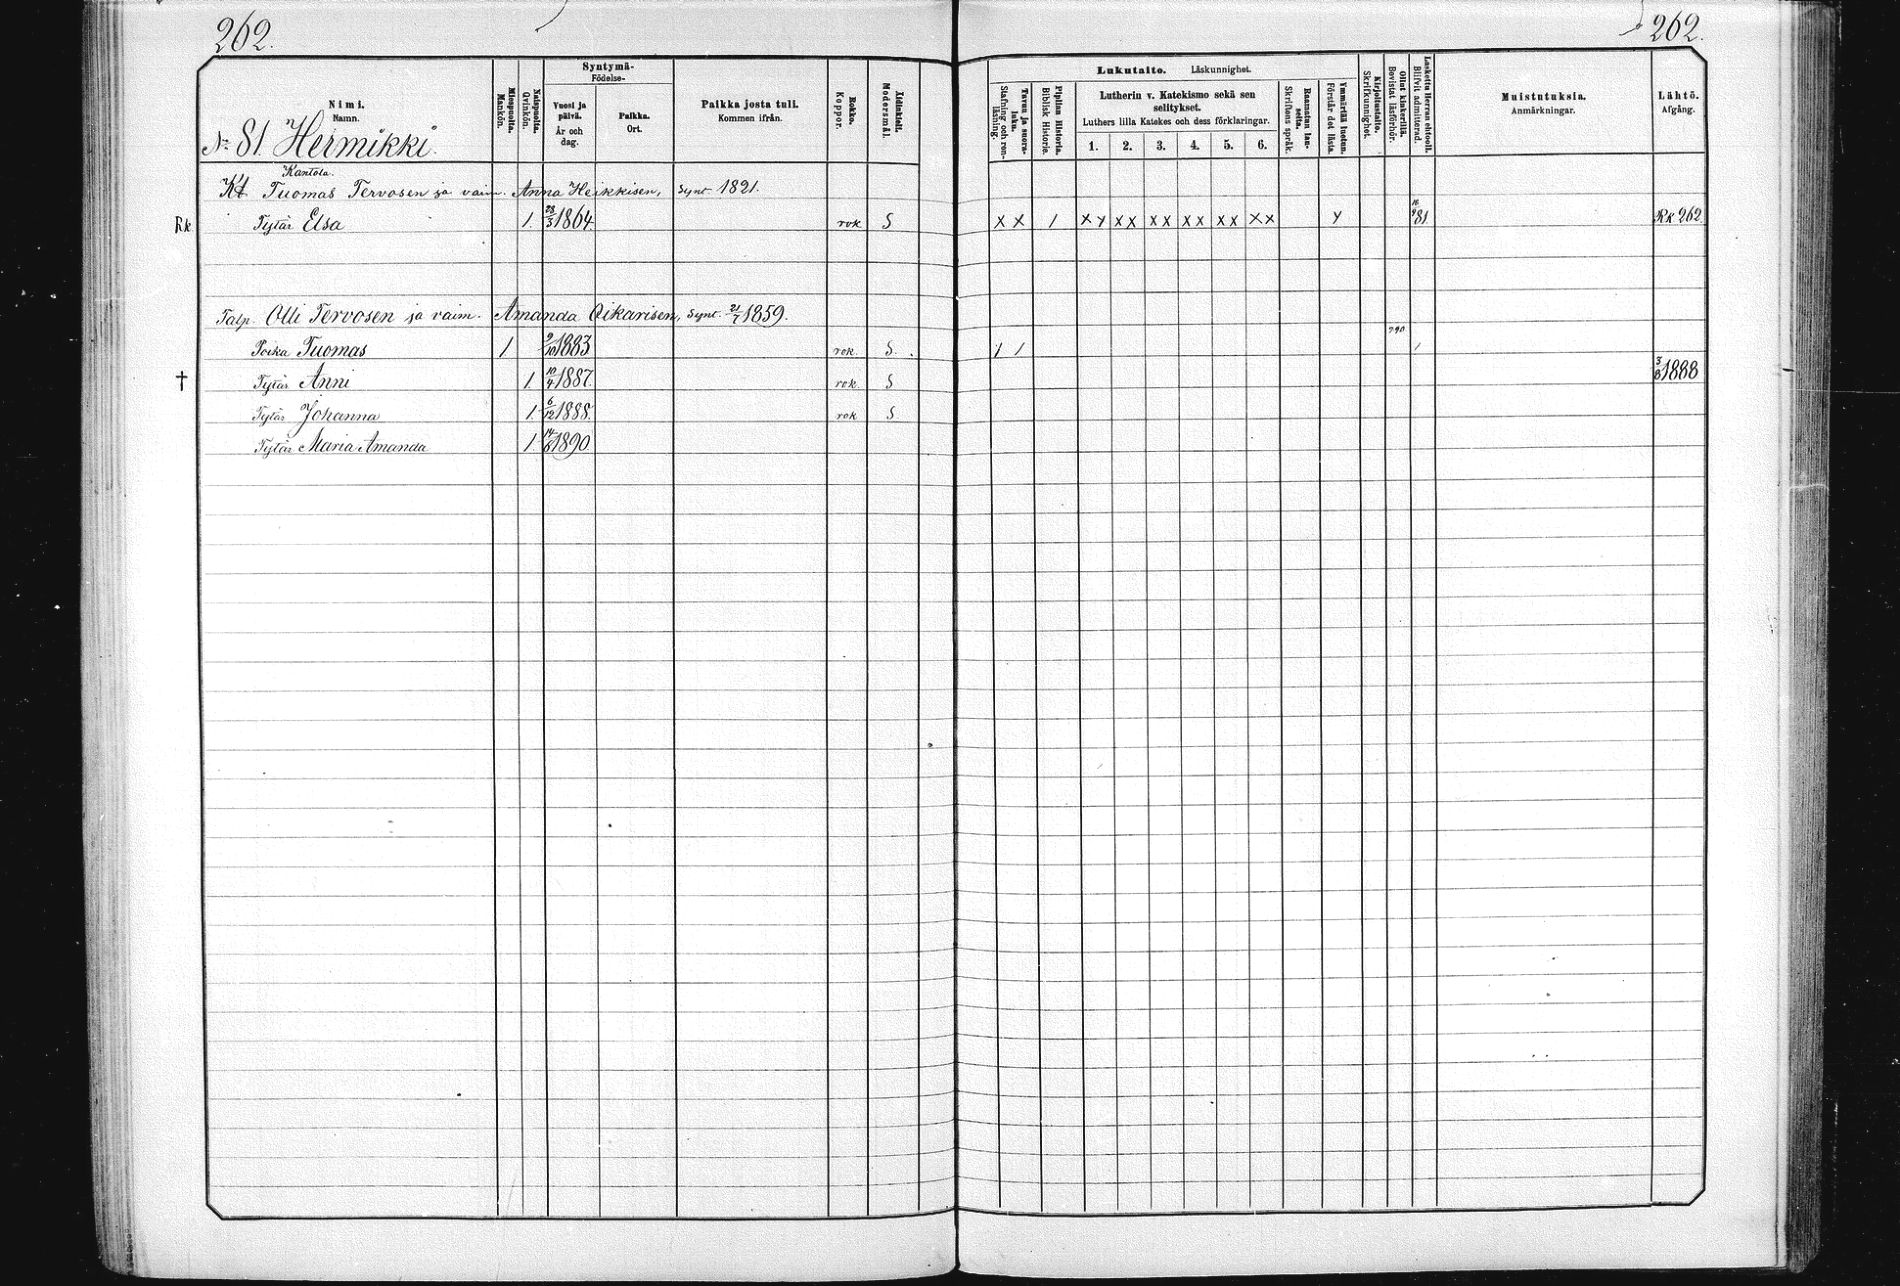 262.
262.
Nimi.
Namn.
№ 81. Heimikki.
Miespuolia.
Mankön.
Naispuolia.
Qvinkön.
Syntymä-
Födelse-
Vuosi ja päivä.
År och dag.
Paikka.
Ort.
Paikka josta tuli.
Kommen ifrån.
Rokko.
Koppor.
Äidinkieli.
Modersmål.
Lukutaito. Läskunnighet.
Tavuu ja suora-luku.
Stafning och ren-läsning.
Piplian Historia.
Biblisk Historie.
Lutherin v. Katekismo sekä sen
selitykset.
Luthers lilla Katekes och dess förklaringar.
1. 2. 3. 4. 5. 6.
Raamatun lau-seita.
Skriftens språk.
Ymmärtää luetun.
Förstår det lästa.
Kirjoitustaito.
Skrifkunnighet.
Ollut kinkerillä.
Bevistat läsförhör.
Laskettu Herran ehtooll.
Blifvit admitterad.
Muistutuksia.
Anmärkningar.
Lähtö.
Afgång.
Kantola.
Kt Tuomas Tervosen ja vaim. Anna Heikkisen, synt 1821.
Rk Tytär Elsa 1. 28/3 1864. rok S x x / x y x x x x x x x x x x y 81 Rk 262
Talp. Olli Tervosen ja vaim. Amanda Oikarisen, synt. 21/7 1859.
Poika Tuomas 1 9/10 1883 rok. S. / / 790 /
† Tytär Anni 1 10/4 1887. rok. S 3/8 1888
Tytär Johanna 1. 6/12 1888. rok S
Tytär Maria Amanda 1. 14/8 1890.